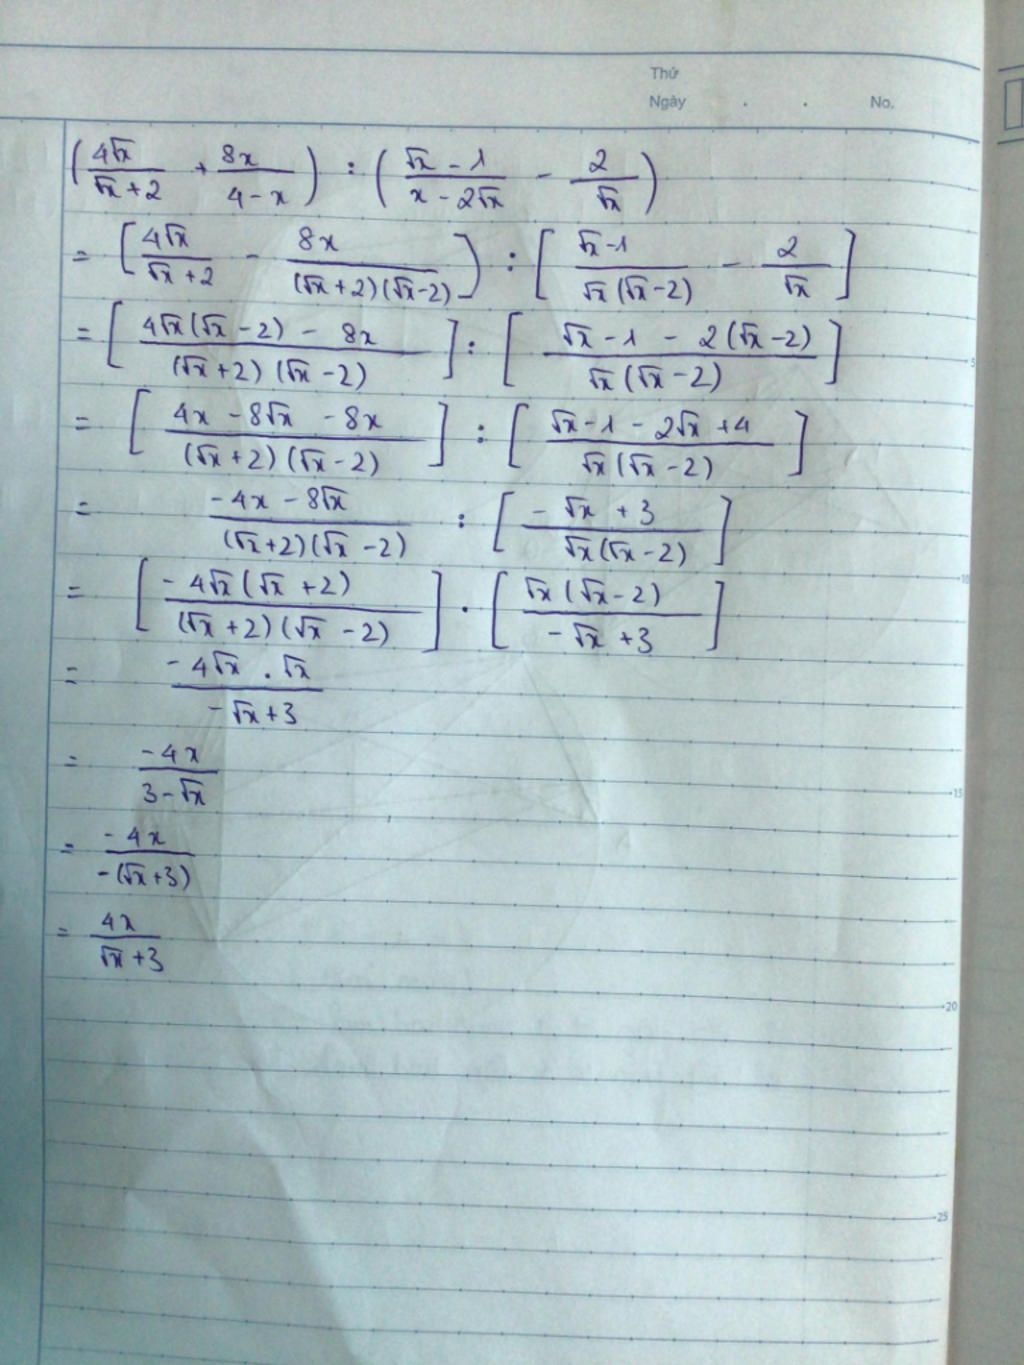 Thứ
Ngày . . No.
(4√x/(√x + 2) + 8x/(4 - x)) : ((√x - 1)/(x - 2√x) - 2/√x)
= [4√x/(√x + 2) - 8x/((√x + 2)(√x - 2))) : [(√x - 1)/(√x(√x - 2)) - 2/√x]
= [(4√x(√x - 2) - 8x)/((√x + 2)(√x - 2))] : [(√x - 1 - 2(√x - 2))/(√x(√x - 2))]
5
= [(4x - 8√x - 8x)/((√x + 2)(√x - 2))] : [(√x - 1 - 2√x + 4)/(√x(√x - 2))]
= (-4x - 8√x)/((√x + 2)(√x - 2)) : [(-√x + 3)/(√x(√x - 2))]
10
= [(-4√x(√x + 2))/((√x + 2)(√x - 2))] . [(√x(√x - 2))/(-√x + 3)]
= (-4√x . √x)/(-√x + 3)
= -4x/(3 - √x)
15
= -4x/(-(√x + 3))
= 4x/(√x + 3)
20
25